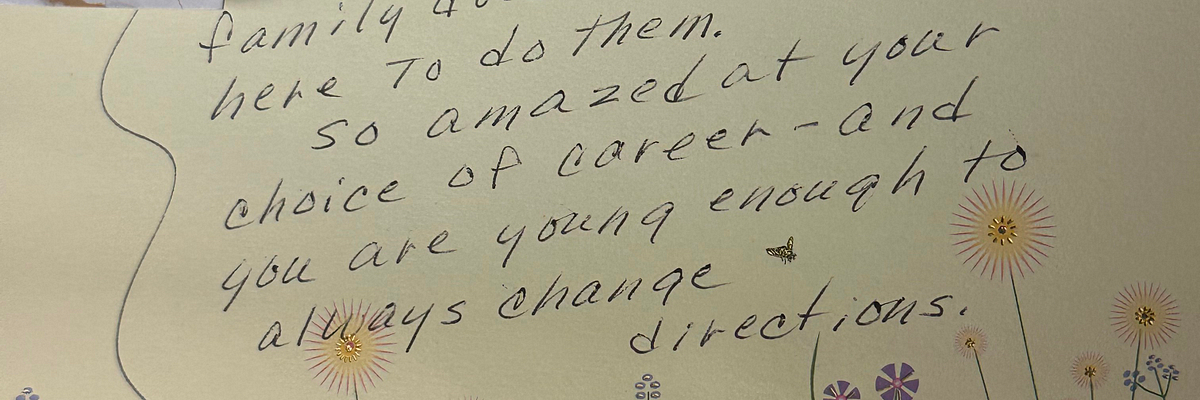 family
here To do them.
so amazed at your
choice of career-and
you are young enough to
always change
directions.